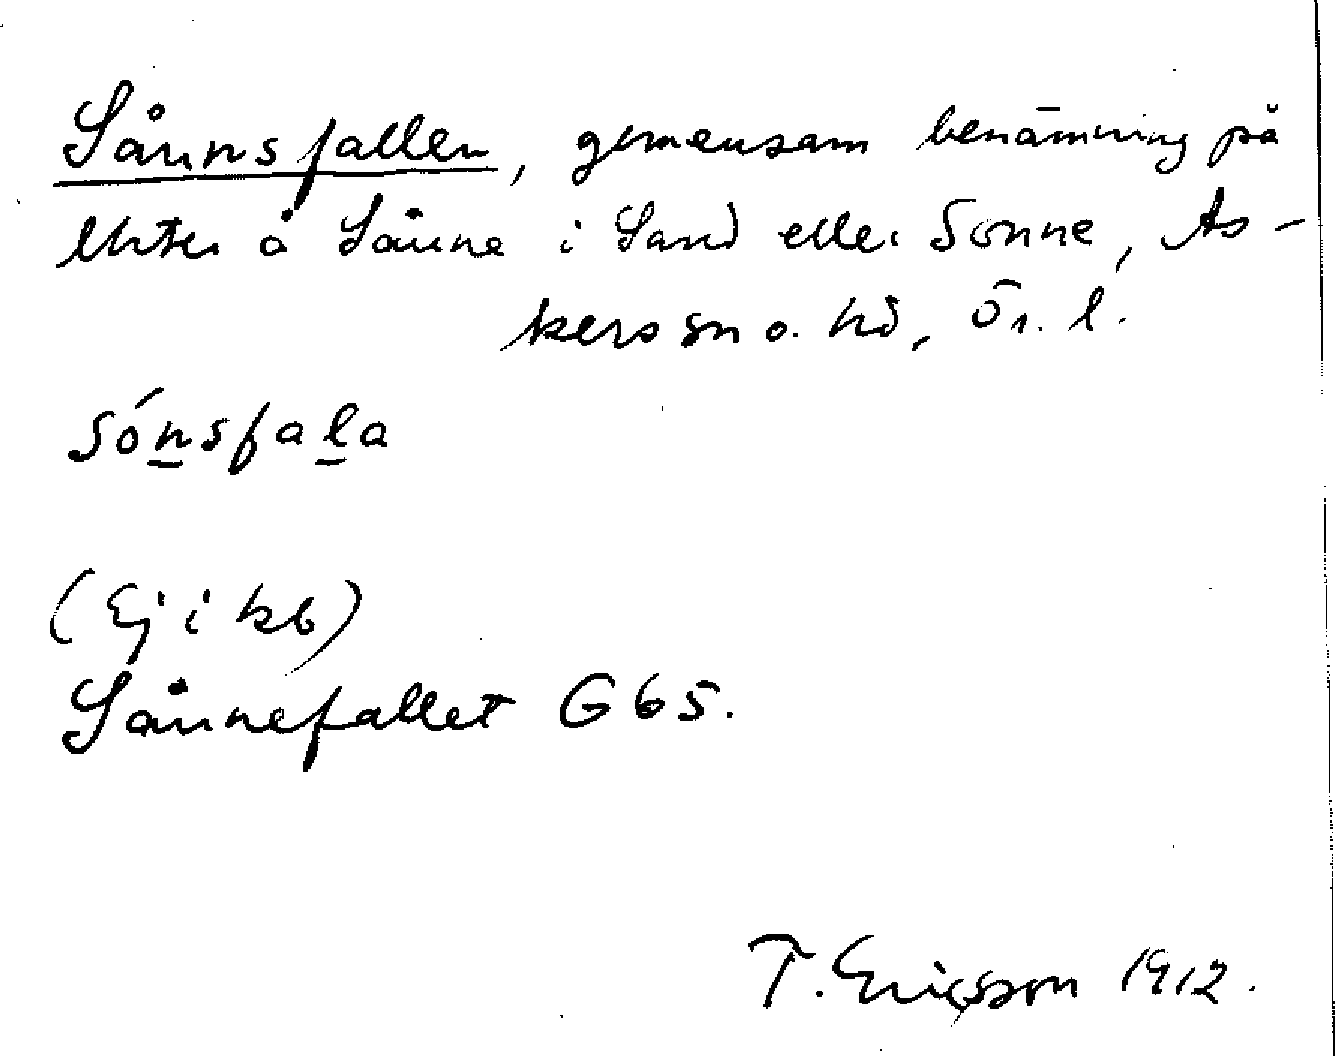 Sånnsfallen, gemensam benämning på
lhter å Sånne i Sand eller Sonne, As-
kers sn o. hd, Ör. l.
sónsfala
(Ej i kb)
Sånnefallet G 65.
T. Ericsson 1912.